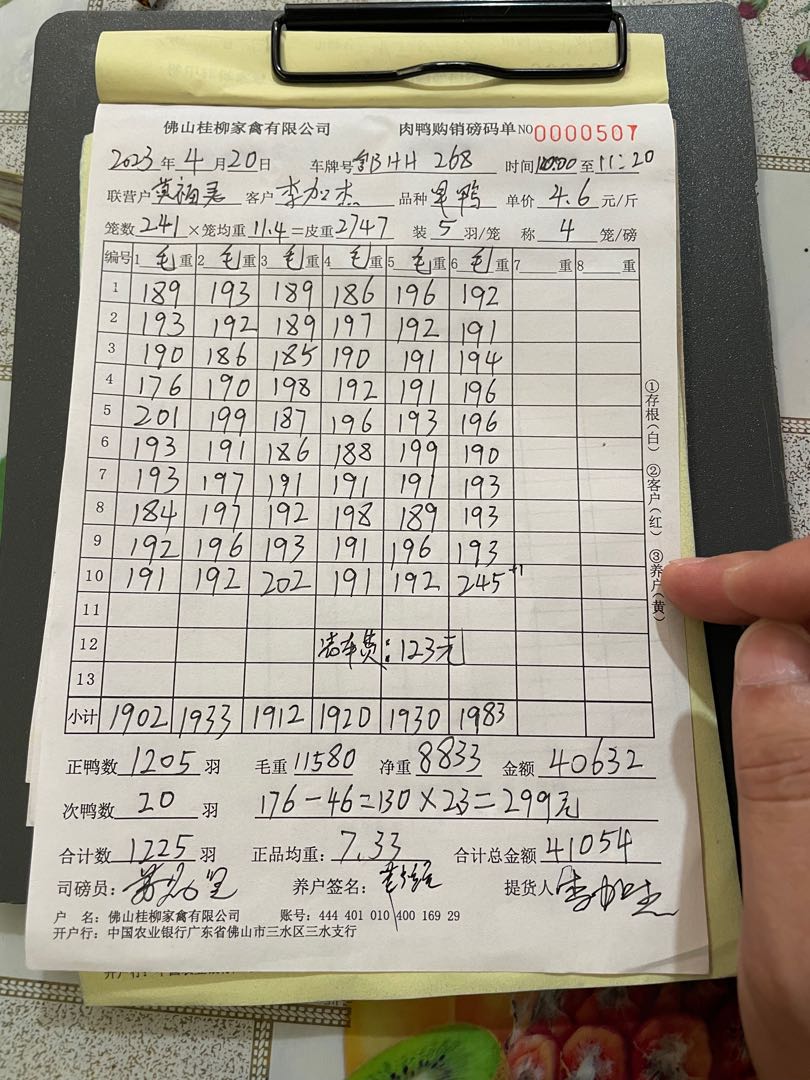 佛山桂柳家禽有限公司 肉鸭购销磅码单 NO 0000507
2023年4月20日 车牌号 HH 268 时间 至 11:20
联营户 客户 李加杰 品种 鸭 单价 4.6 元/斤
笼数 241 ×笼均重 11.4 =皮重 2747 装 5 羽/笼 称 4 笼/磅
编号 1 毛 重 2 毛 重 3 毛 重 4 毛 重 5 毛 重 6 毛 重 7 重 8 重
1 189 193 189 186 196 192
2 193 192 189 197 192 191
3 190 186 185 190 191 194
4 176 190 198 192 191 196
5 201 199 187 196 193 196
6 193 191 186 188 199 190
7 193 197 191 191 191 193
8 184 197 192 198 189 193
9 192 196 193 191 196 193
10 191 192 202 191 192 245 +1
11
12 车费:123元
13
小计 1902 1933 1912 1920 1930 1983
①存根(白) ②客户(红) ③养户(黄)
正鸭数 1205 羽 毛重 11580 净重 8833 金额 40632
次鸭数 20 羽 176-46=130×23=299元
合计数 1225 羽 正品均重: 7.33 合计总金额 41054
司磅员: 养户签名: 提货人 李加杰
户 名: 佛山桂柳家禽有限公司 账号: 444 401 010 400 169 29
开户行: 中国农业银行广东省佛山市三水区三水支行